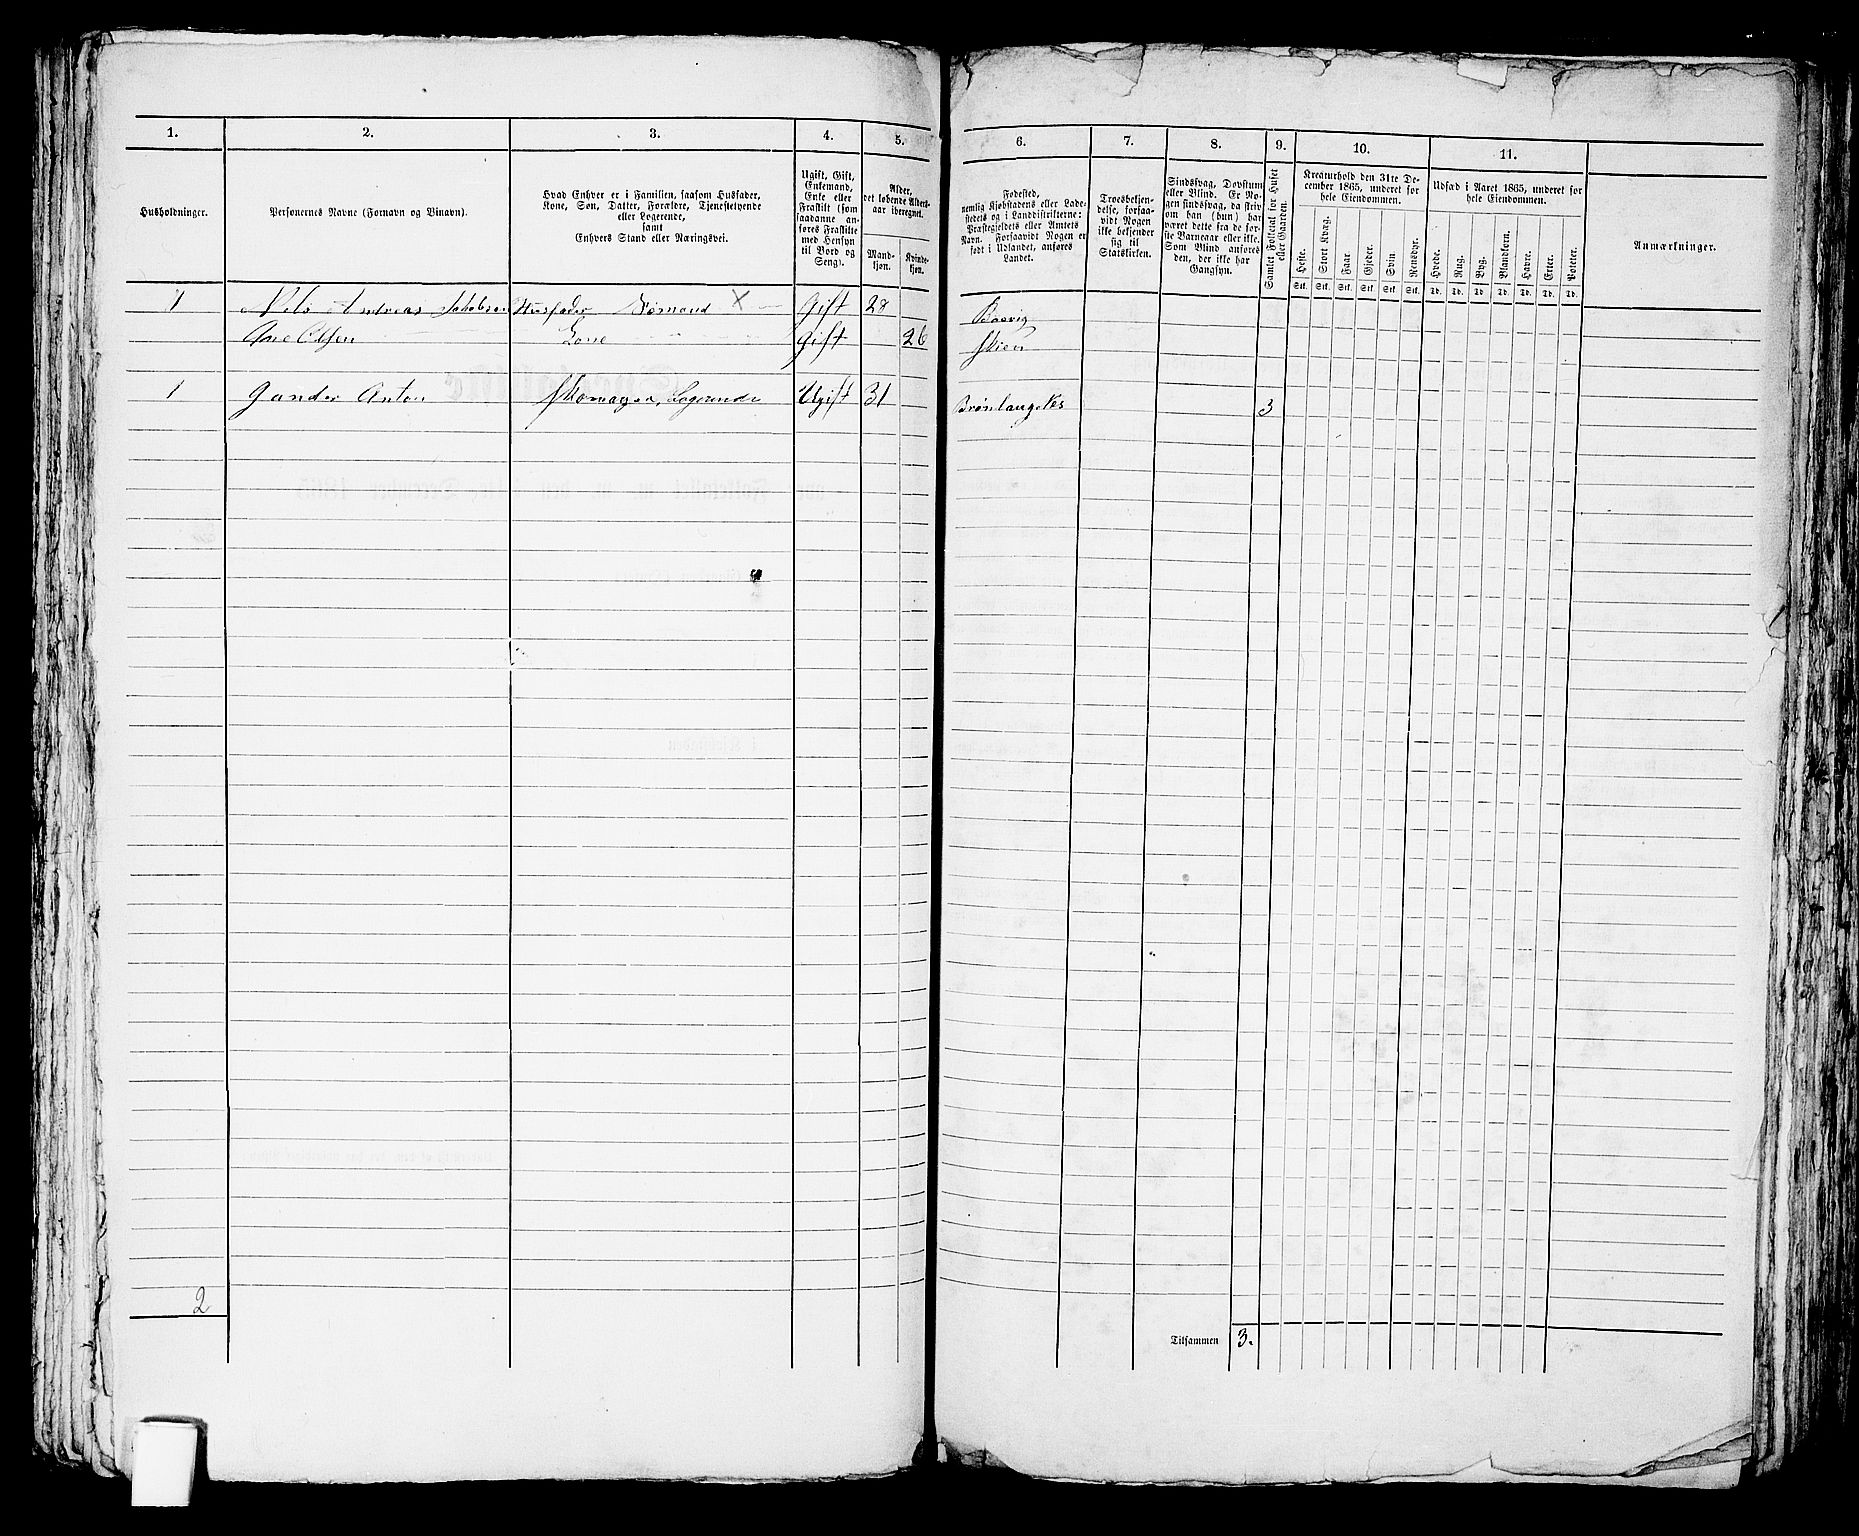 1. 2. 3. 4. 5. 6. 7. 8. 9. 10. 11.
Husholdninger.
Personernes Navne (Fornavn og Tilnavn).
Hvad Enhver er i Familien, saasom Husfader,
Kone, Søn, Datter, Forældre, Tjenestetyende
eller Logerende,
samt
Enhvers Stand eller Næringsvei.
Ugift, Gift,
Enkemand,
Enke eller
Fraskilt (som
saadanne an-
føres Fraskilte
med Hensyn
til Bord og
Seng).
Alder,
det løbende Alders-
aar iberegnet.
Mand-
kjøn.
Kvinde-
kjøn.
Fødested,
nemlig Kjøbstadens eller Lade-
stedets og i Landdistrikterne:
Præstegjeldets eller Amtets
Navn. Forsaavidt Nogen er
født i Udlandet, anføres
Landet.
Troesbekjen-
delse, forsaa-
vidt Nogen
ikke bekjender
sig til
Statskirken.
Sindssvag, Døvstum
eller Blind. Er No-
gen sindssvag, da skriv
om han (hun) har
været dette fra de før-
ste Barneaar eller ikke.
Som Blind anføres
den, der ikke har
Gangsyn.
Samlet Folketal for Huset
eller Gaarden.
Kreaturhold den 31te De-
cember 1865, underet for
hele Eiendommen.
Heste. Stort Kvæg. Faar. Gjeder. Svin. Rensdyr.
Stk. Stk. Stk. Stk. Stk. Stk.
Udsæd i Aaret 1865, underet for
hele Eiendommen.
Hvede. Rug. Byg. Blandkorn. Havre. Erter. Poteter.
Td. Td. Td. Td. Td. Td. Td.
Anmærkninger.
1 Nels Andreas Jakobsen Husfader Sømand X Gift 28
Ane Olsen Kone Gift 26 Skien
1 Gander Anton Skomager, Logerende Ugift 31 3
2
Tilsammen 3.